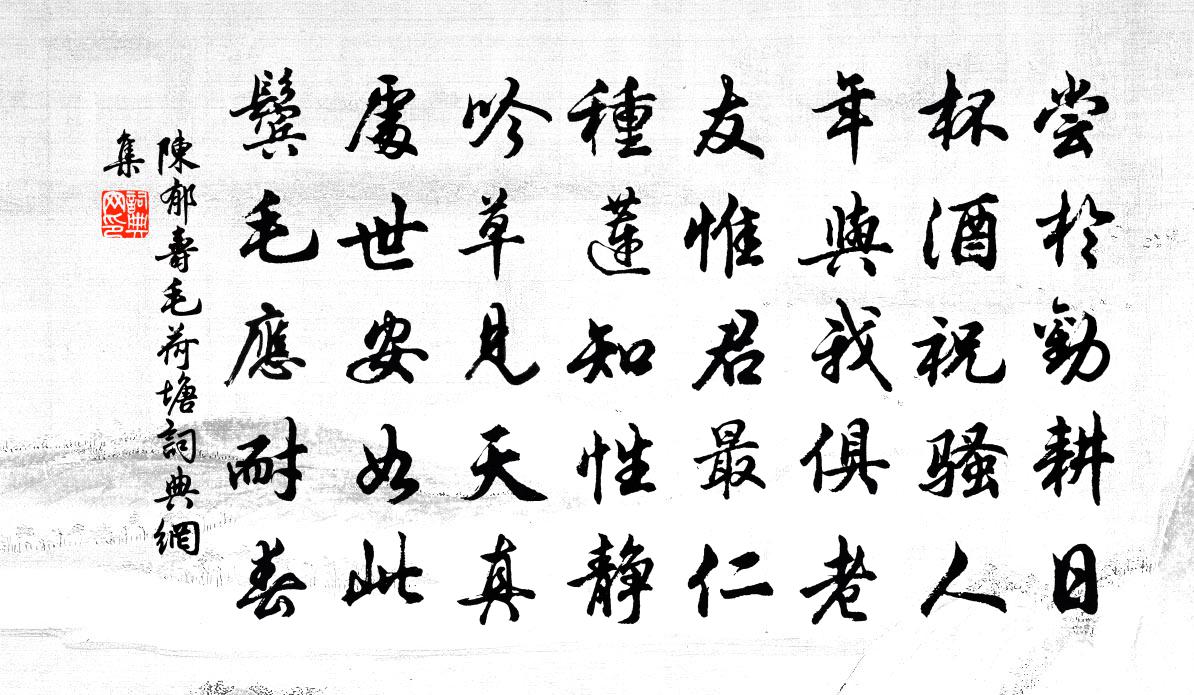 嘗於勸耕日
杯酒祝骚人
年與我俱老
友惟君最仁
種蓮知性静
吟草見天真
處世安如此
鬓毛應耐春
陳郁壽毛荷塘詞典網
集
詞典
网印